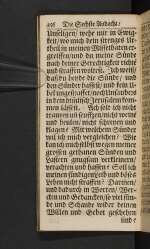 Die Sechste Andacht:
Unseligen/ wehe mir in Ewig-
keit/ wo mich dein strenges Ur-
theil in meinen Missethaten er-
greiffen/ und in meiner Sünde
nach deiner Gerechtigkeit richten
und straffen wolte. Ich weiß/
daß du beyde die Sünde/ und
den Sünder hassest/ und kein U-
bel ungestraffet/
in dem irdisch Jerusalem kom-
men lässest. Ach soll ich nicht
trauren und seuffzen/nicht weine
und heulen nicht schreyen und
klagen? Mit welchem Sünder
wil ich mich vergleichen? Wie
kan ich mich selbst wegen meiner
grossen gethanen Sünden und
Lastern gnugsam verkleinern/
verachten und hassen? Soll ich
meinen sündigen und bösen
Leben nicht straffen? Darinen/
und dadurch in Worten/ Wer-
cken und Gedancken/so viel Sün-
de und Schande wider deinen
Willen und Gebot geschehen
sind?